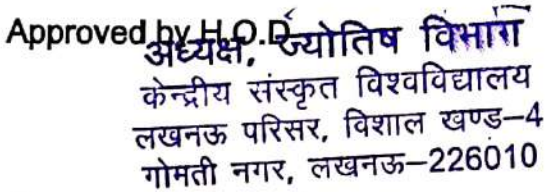 Approved by H.O.D.
अध्यक्ष, ज्योतिष विभाग
केन्द्रीय संस्कृत विश्वविद्यालय
लखनऊ परिसर, विशाल खण्ड–4
गोमती नगर, लखनऊ–226010